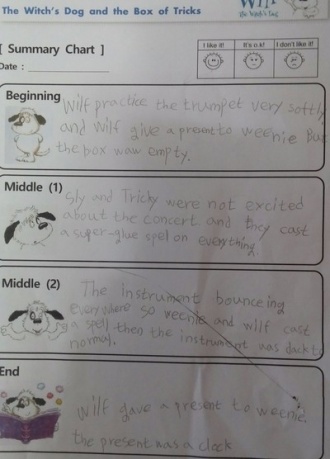 The Witch's Dog and the Box of Tricks
Wilf
the Witch's Dog
[ Summary Chart ]
I like it!
It's o.k!
I don't like it!
Date :
Beginning
Wilf practice the trumpet very softly
and Wilf give a present to weenie But
the box waw empty.
Middle (1)
Sly and Tricky were not excited
about the concert and they cast
a super-glue spel on everything.
Middle (2)
The instrument bounceing
everywhere so weenie and wilf cast
a spell then the instrument was back to
normal.
End
Wilf gave a present to weenie.
the present was a clock